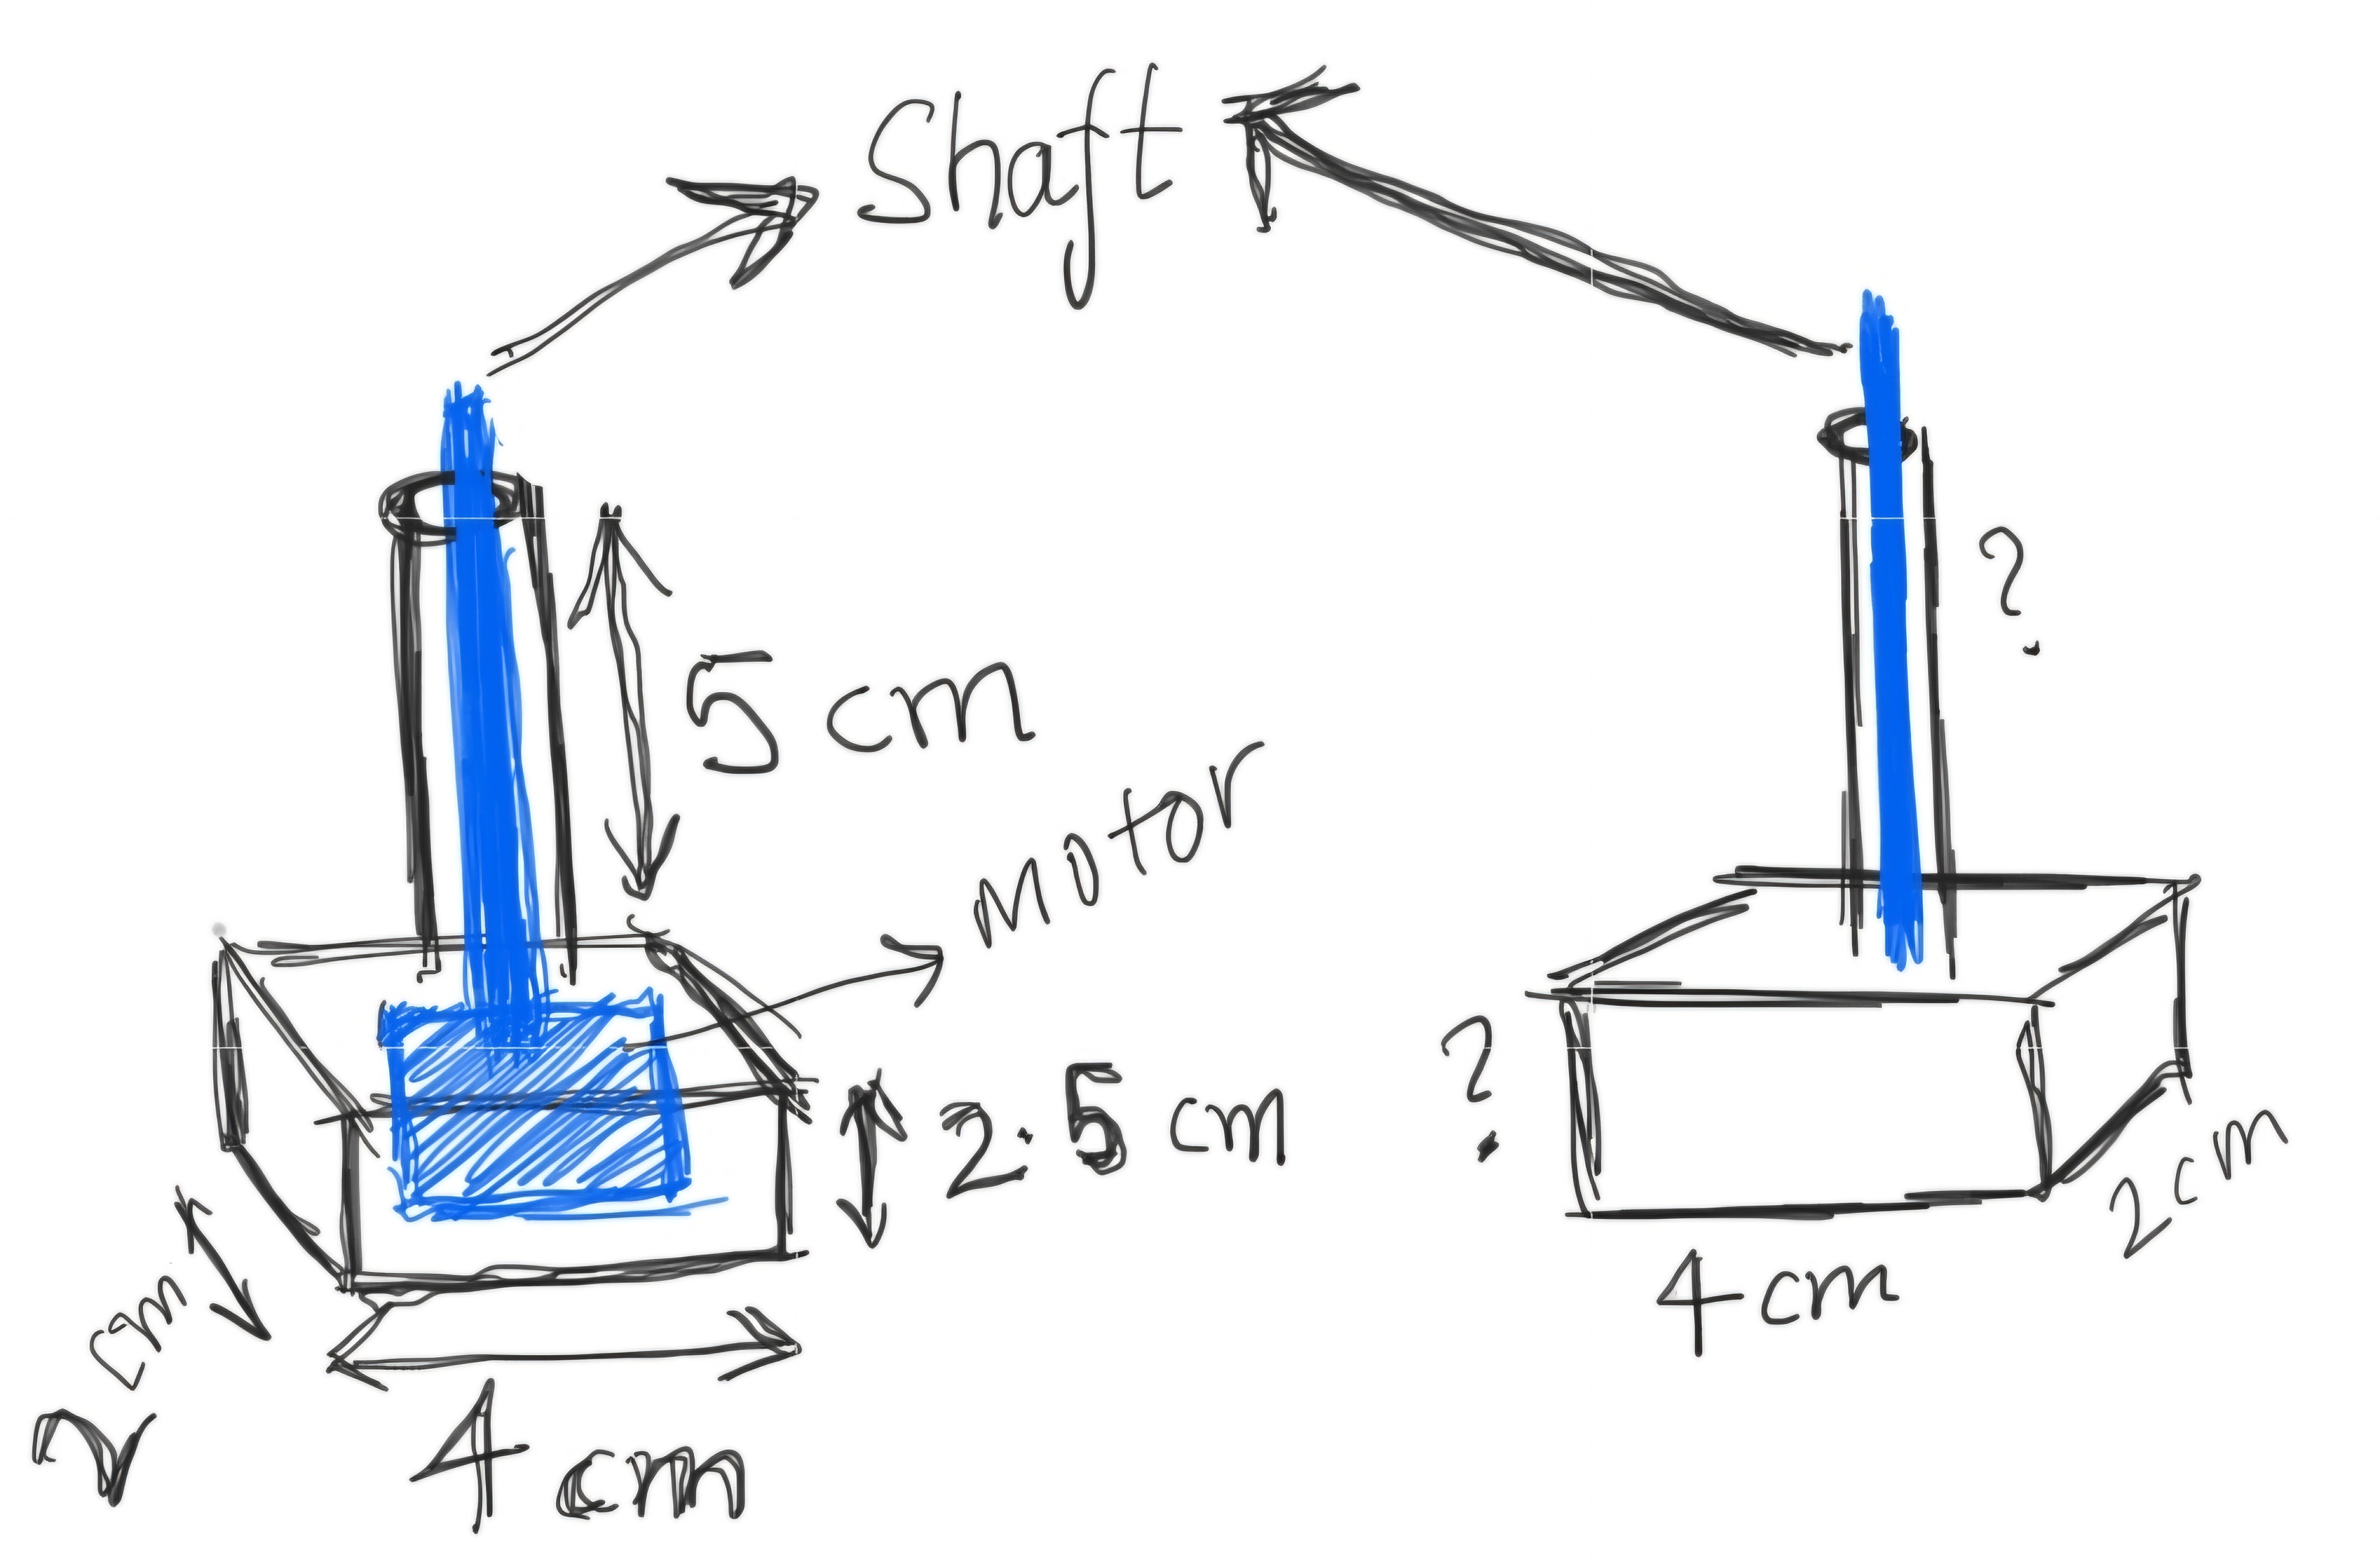 Shaft
5 cm
?
motor
2.5 cm
?
2 cm
4 cm
4 cm
2 cm